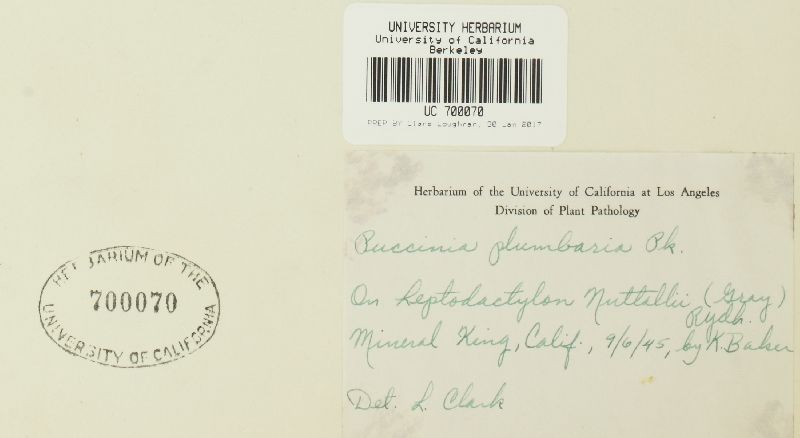 UNIVERSITY HERBARIUM
University of California
Berkeley
UC 700070
PREP BY Ziara Loughran, 30 Jan 2017
Herbarium of the University of California at Los Angeles
Division of Plant Pathology
Puccinia plumbaria Pk.
On Leptodactylon Nuttallii (Gray) Rydb.
Mineral King, Calif., 9/6/45, by K. Baker
Det. L. Clark
HERBARIUM OF THE
700070
UNIVERSITY OF CALIFORNIA